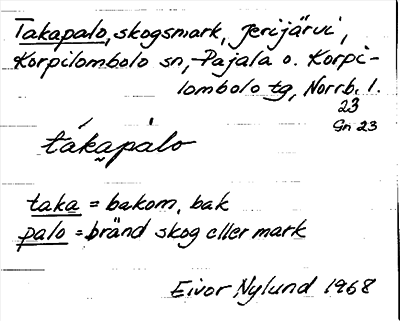 Takapalo, skogsmark, Jerijärvi,
Korpilombolo sn, Pajala o. Korpi-
lombolo tg, Norrb. l.
23
Gn 23
tákapàlo
taka = bakom, bak
palo = bränd skog eller mark
Eivor Nylund 1968